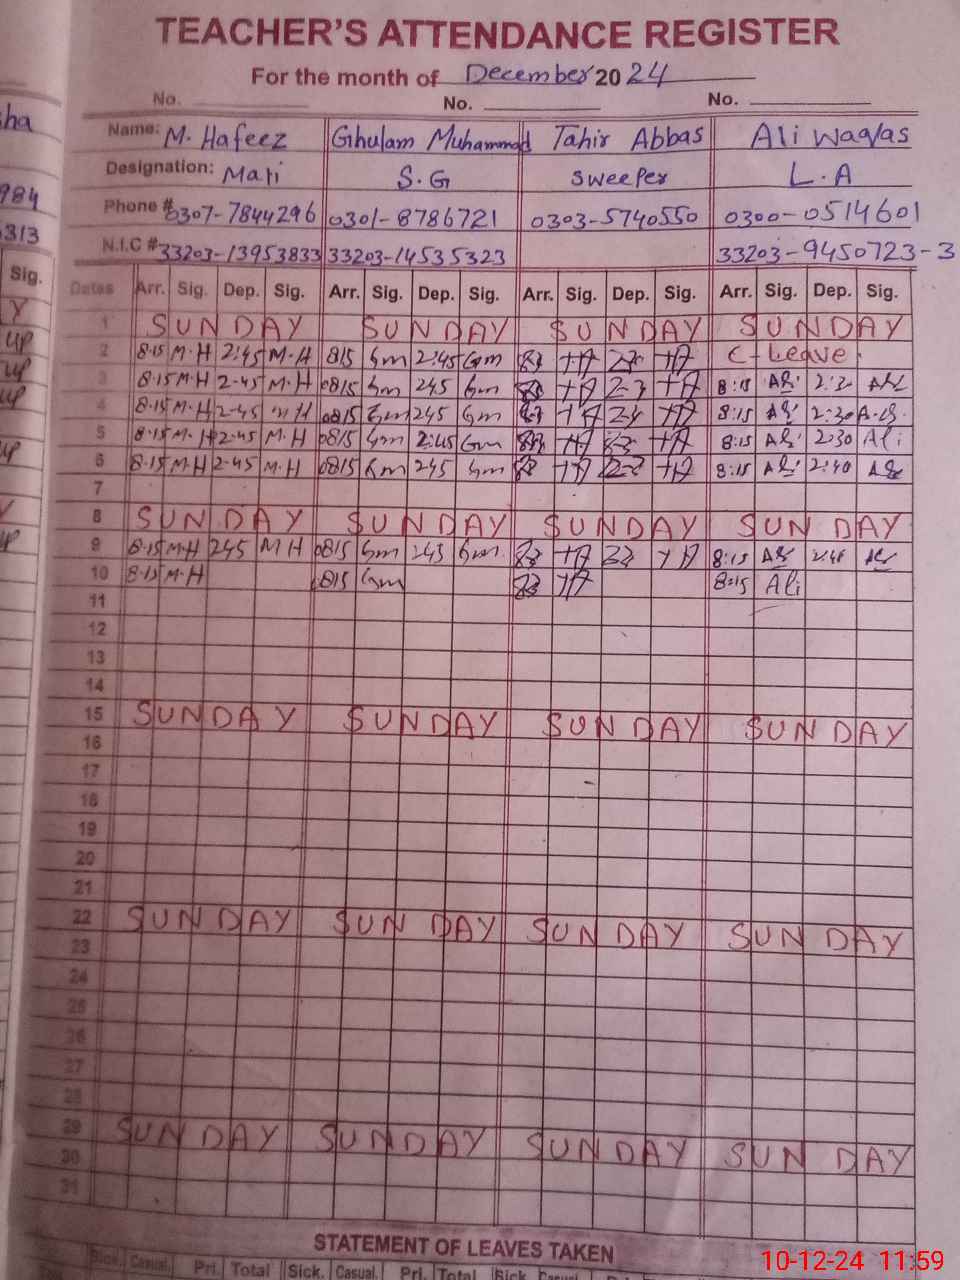 TEACHER'S ATTENDANCE REGISTER
For the month of December 2024
No. No. No.
sha Name: M. Hafeez Ghulam Muhammad Tahir Abbas Ali Waqas
Designation: Mali S.G Sweeper L.A
984 Phone # 0307-7844296 0301-8786721 0303-5740550 0300-0514601
313 N.I.C # 33203-13953833 33203-14535323 33203-9450723-3
Sig. Dates Arr. Sig. Dep. Sig. Arr. Sig. Dep. Sig. Arr. Sig. Dep. Sig. Arr. Sig. Dep. Sig.
1 SUNDAY SUNDAY SUNDAY SUNDAY
2 8-15 M-H 2:45 M-H 815 Gm 2:45 Gm TA TA C-Leave
3 8-15 M-H 2-45 M-H 0815 Gm 245 Gm TA TA 8:15
4 8-15 M-H 2-45 M H 0815 Gm 245 Gm TA TA 8:15 2:30
5 8-15 M-H 2-45 M-H 0815 Gm 2:45 Gm TA TA 8:15 2:30 Ali
6 8-15 M-H 2-45 M-H 0815 Gm 245 Gm TA TA 8:15 2:40
7
8 SUNDAY SUNDAY SUNDAY SUNDAY
9 8-15 M-H 245 M H 0815 Gm 245 Gm TA TA 8:15
10 8-15 M-H 0815 Gm TA 8:15 Ali
11
12
13
14
15 SUNDAY SUNDAY SUNDAY SUNDAY
16
17
18
19
20
21
22 SUNDAY SUNDAY SUNDAY SUNDAY
23
24
25
26
27
28
29 SUNDAY SUNDAY SUNDAY SUNDAY
30
31
STATEMENT OF LEAVES TAKEN
Sick. Casual. Pri. Total Sick. Casual. Pri. Total Sick Casual
10-12-24 11:59